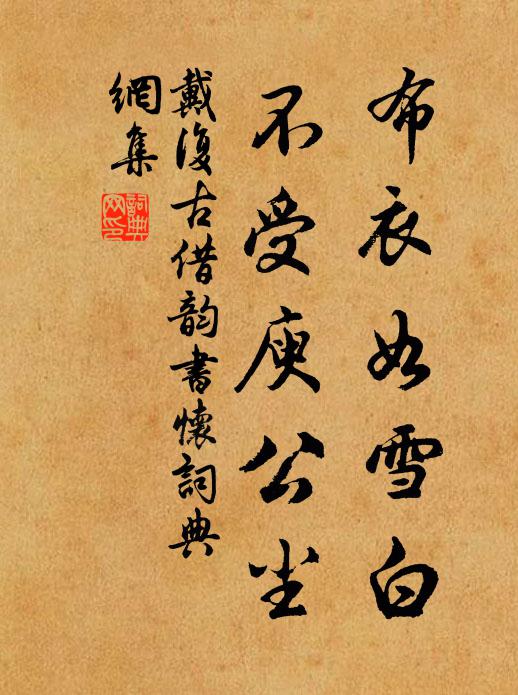 布衣如雪白
不受庾公尘
戴復古借韵書懷詞典
網集
詞典
网印